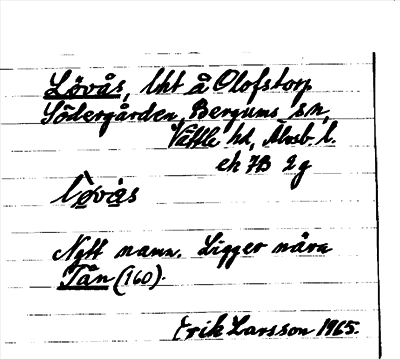 Lövås, lht å Olofstorp
Södergården, Bergums sn,
Vättle hd, Älvsb. l.
ek 7B 2g
lö̀vås
Nytt namn. Ligger nära
Tån (160).
Erik Larsson 1965.